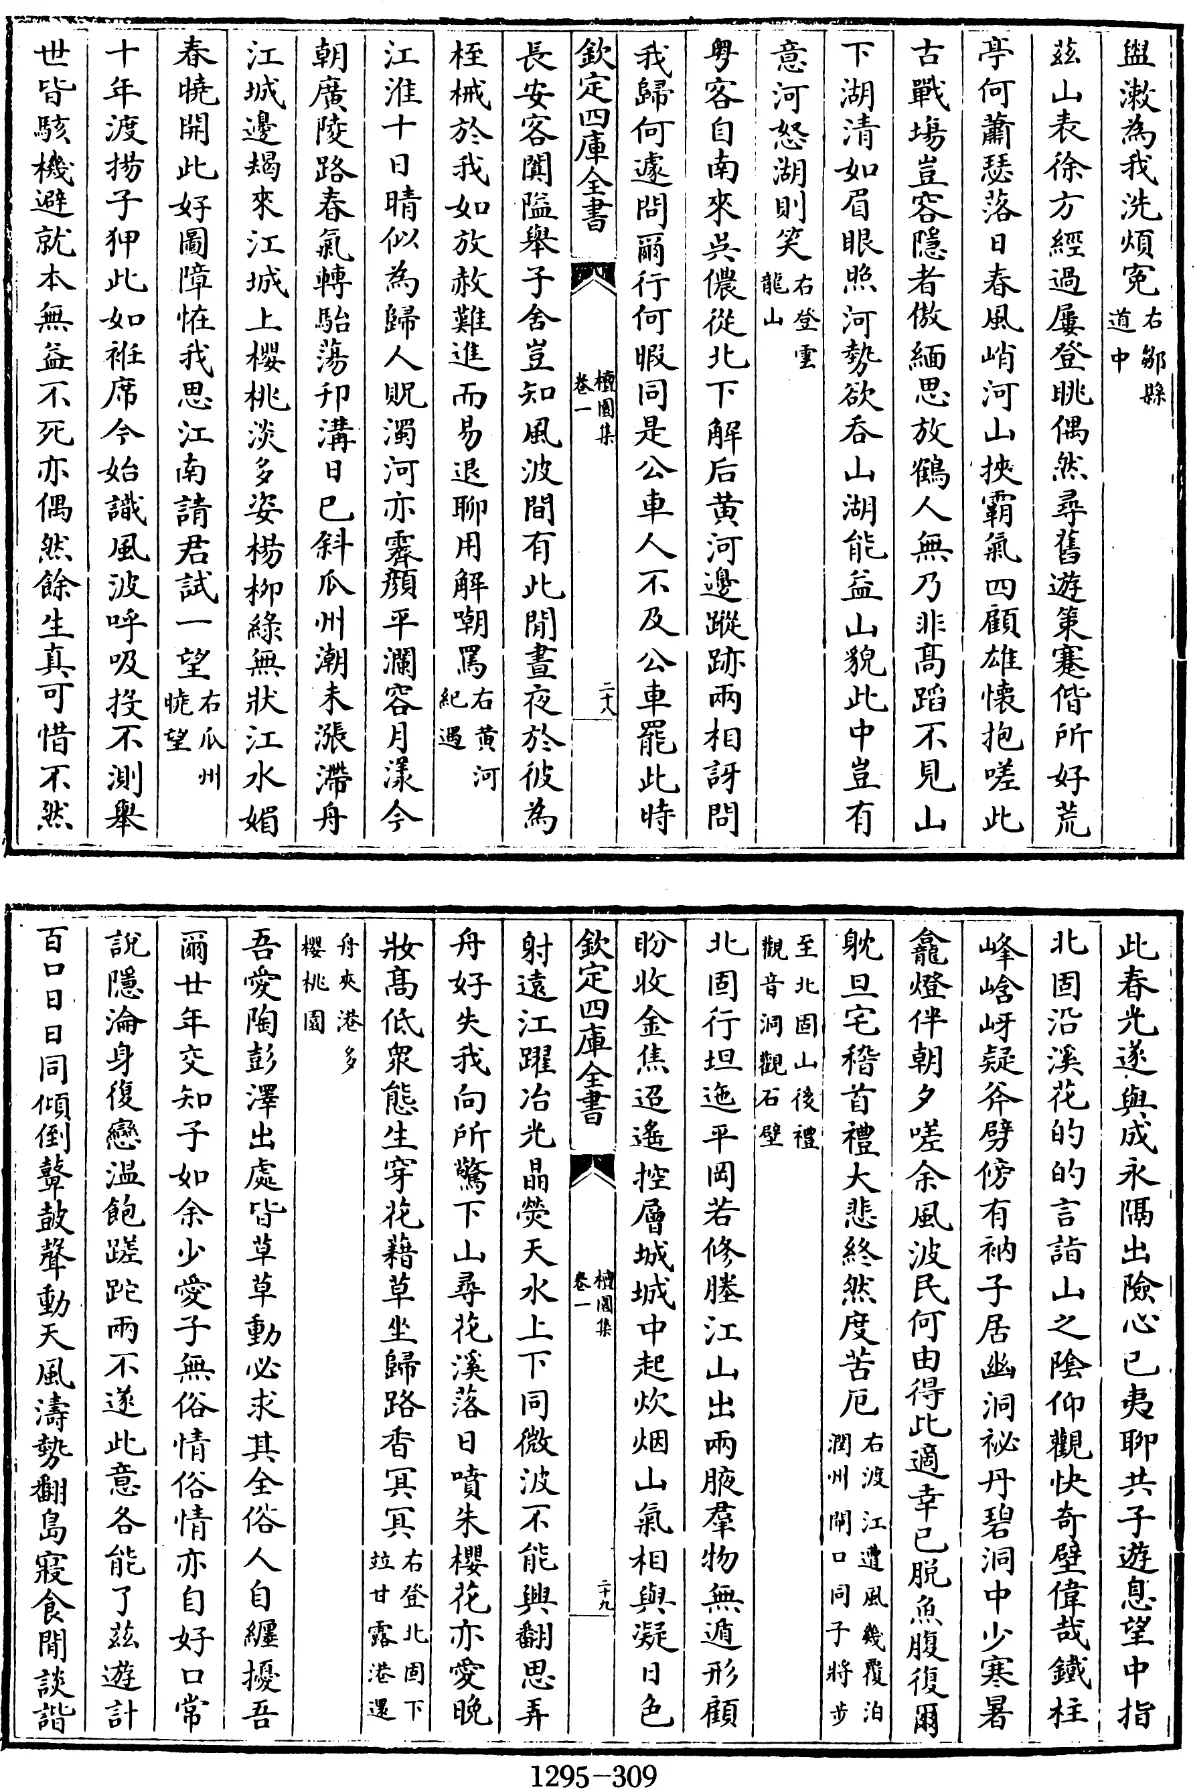 盥漱為我洗煩寃右鄒縣道中
茲山表徐方經過屢登眺偶然尋舊遊策蹇偕所好荒
亭何蕭瑟落日春風峭河山挾霸氣四顧雄懷抱嗟此
古戰塲豈容隱者傲緬思放鶴人無乃非髙蹈不見山
下湖清如眉眼照河勢欲吞山湖能益山貌此中豈有
意河怒湖則笑右登雲龍山
粤客自南來吳儂從北下解后黄河邊蹤跡兩相訝問
我歸何遽問爾行何暇同是公車人不及公車罷此時
欽定四庫全書 檀園集 卷一 二十八
長安客闐隘舉子舍豈知風波間有此閒晝夜於彼為
桎梏於我如放赦難進而易退聊用解嘲罵右黄河紀遇
江淮十日晴似為歸人貺濁河亦霽顔平瀾容月漾今
朝廣陵路春氣轉駘蕩邗溝日已斜瓜州潮未漲滯舟
江城邊朅來江城上櫻桃淡多姿楊柳綠無狀江水媚
春曉開此好圖障恠我思江南請君試一望右瓜州曉望
十年渡揚子狎此如袵席今始識風波呼吸投不測舉
世皆駭機避就本無益不死亦偶然餘生真可惜不然
此春光遂與成永隔出險心已夷聊共子遊息望中指
北固沿溪花的的言詣山之陰仰觀快奇壁偉哉鐵柱
峰㟏岈疑斧劈傍有衲子居幽洞袐丹碧洞中少寒暑
龕燈伴朝夕嗟余風波民何由得此適幸已脱魚腹復爾
躭旦宅稽首禮大悲終然度苦厄右渡江遭風幾覆泊潤州閘口同子將步
至北固山後禮觀音洞觀石壁
北固行坦迤平岡若修塍江山出兩腋羣物無遁形顧
盼收金焦迢遙控層城城中起炊烟山氣相與凝日色
欽定四庫全書 檀園集 卷一 二十九
射遠江躍冶光晶熒天水上下同微波不能興翻思弄
舟好失我向所驚下山尋花溪落日噴朱櫻花亦愛晚
妝髙低衆態生穿花藉草坐歸路香冥冥右登北固下竝甘露港還
舟夾港多櫻桃園
吾愛陶彭澤出處皆草草動必求其全俗人自纒擾吾
爾廿年交知子如余少愛子無俗情俗情亦自好口常
說隱淪身復戀温飽蹉跎兩不遂此意各能了茲遊計
百口日日同傾倒鼙鼓聲動天風濤勢翻島寢食閒談諧